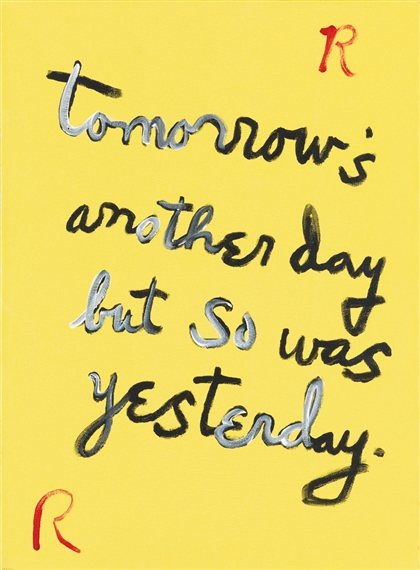 R
tomorrow's
another day
but so was
yesterday.
R